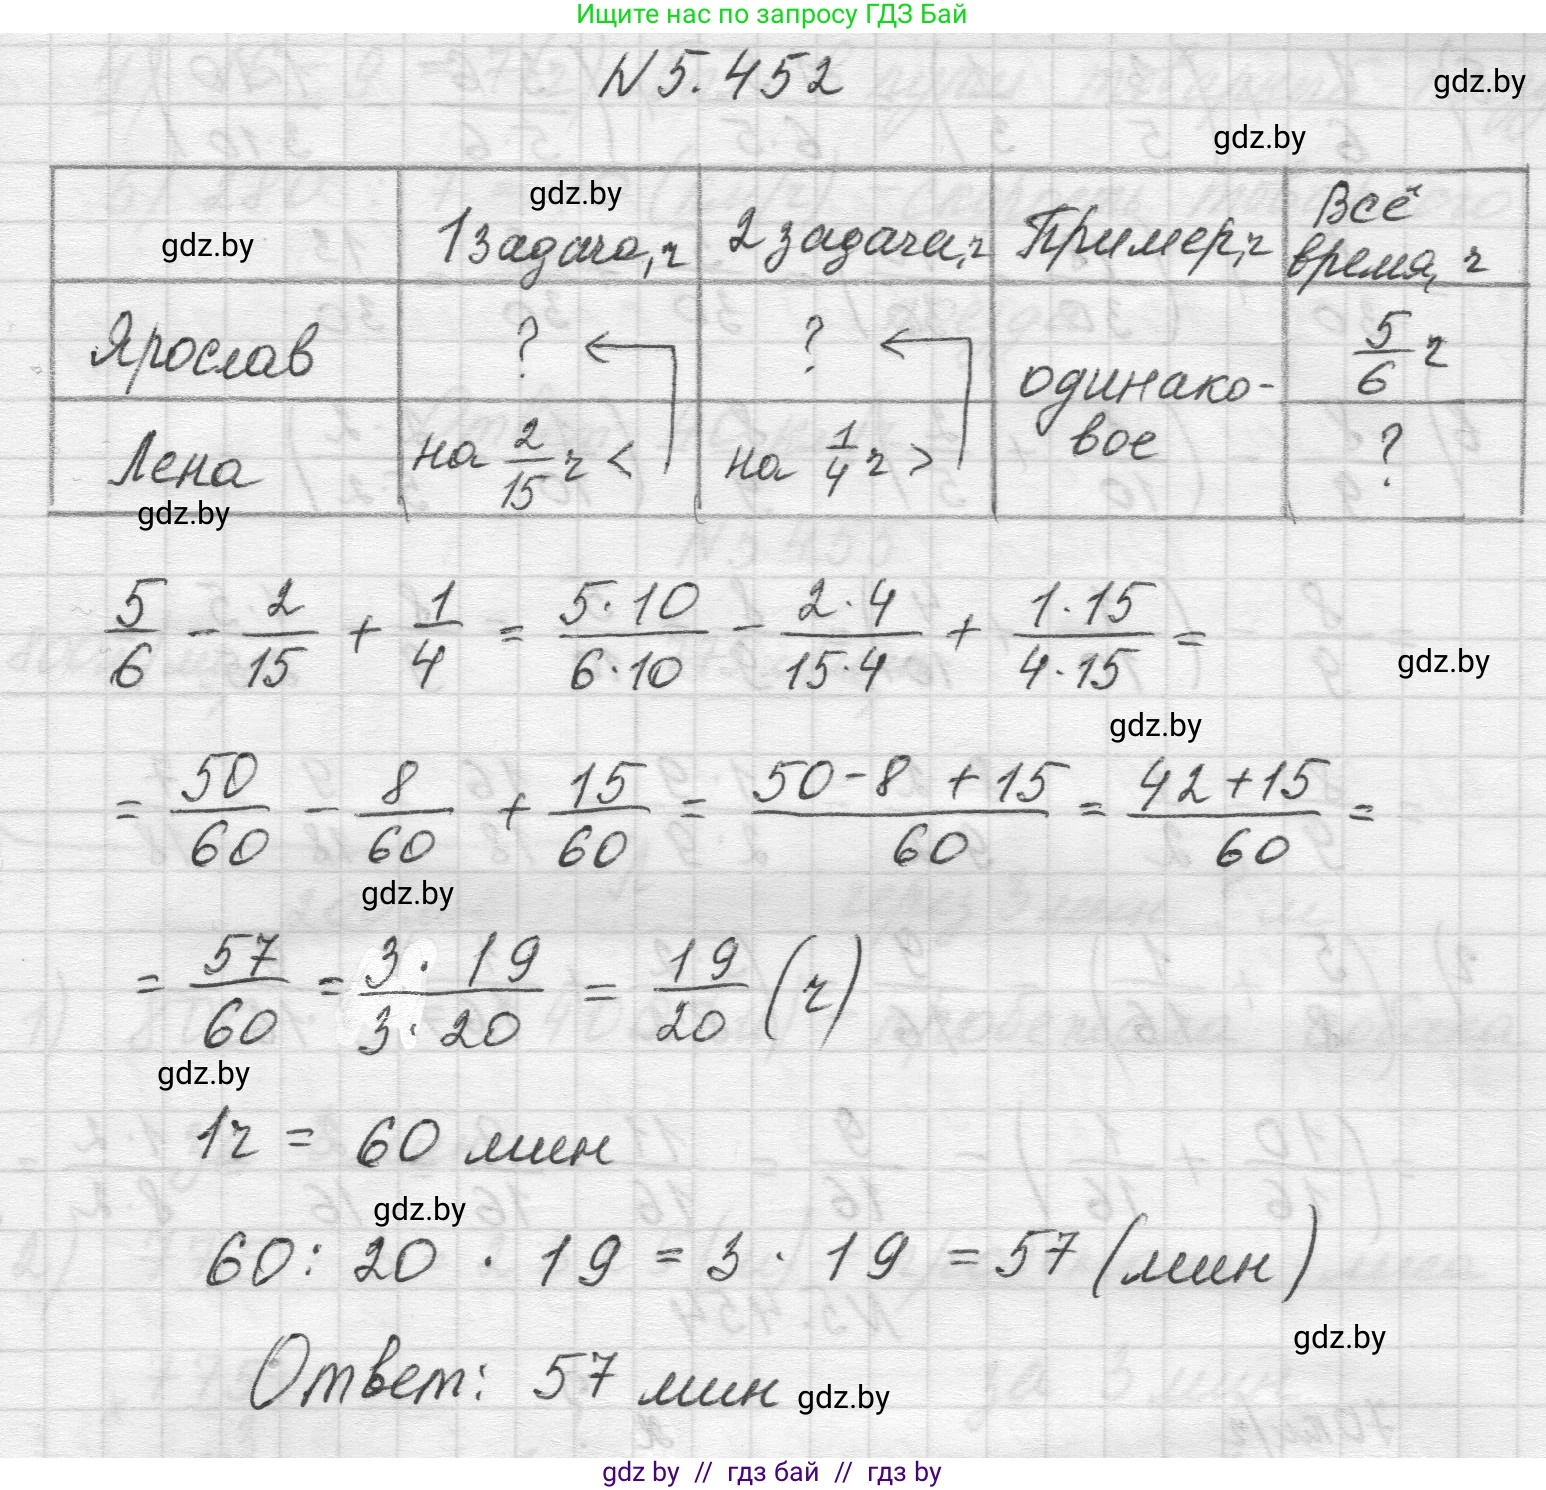 Ищите нас по запросу ГДЗ Бай
N 5.452
gdz.by
gdz.by
gdz.by
gdz.by 1 задача, ч 2 задача, ч Пример, ч Всё время, ч
Ярослав ? ? одинаковое 5/6 ч
Лена на 2/15 ч < на 1/4 ч > ?
gdz.by
5/6 - 2/15 + 1/4 = 5·10/6·10 - 2·4/15·4 + 1·15/4·15 =
gdz.by
gdz.by
= 50/60 - 8/60 + 15/60 = 50-8+15/60 = 42+15/60 =
gdz.by
= 57/60 = 3·19/3·20 = 19/20 (ч)
gdz.by
1ч = 60 мин
gdz.by
60 : 20 · 19 = 3 · 19 = 57 (мин)
gdz.by
Ответ: 57 мин gdz.by
gdz by // гдз бай // гдз by